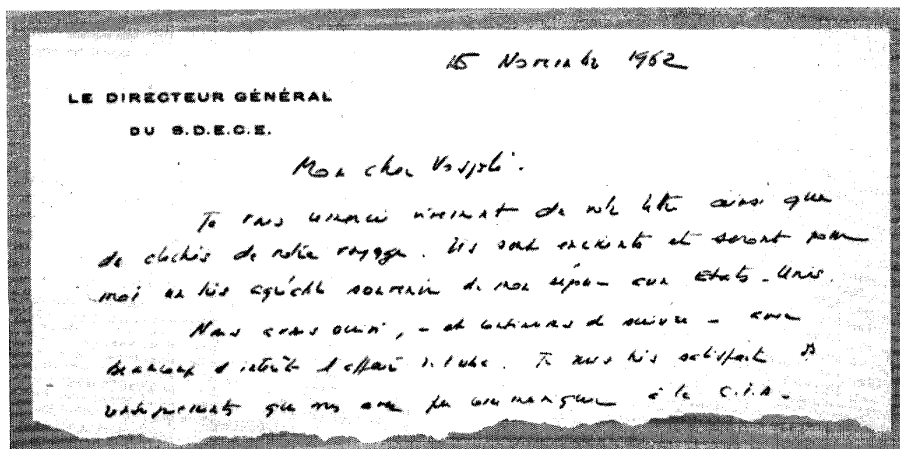 15 Novembre 1962
LE DIRECTEUR GÉNÉRAL
DU S.D.E.C.E.
Mon cher Vosjoli.
Je vous remercie vivement de votre lettre ainsi que
de clichés de notre voyage. Ils sont excellents et seront pour
moi un très agréable souvenir de mon séjour aux Etats-Unis.
Nous avons suivi, - et continuons de suivre - avec
beaucoup d'intérêt l'affaire de Cuba. Je suis très satisfait
renseignements que vous avez pu communiquer à la C.I.A.